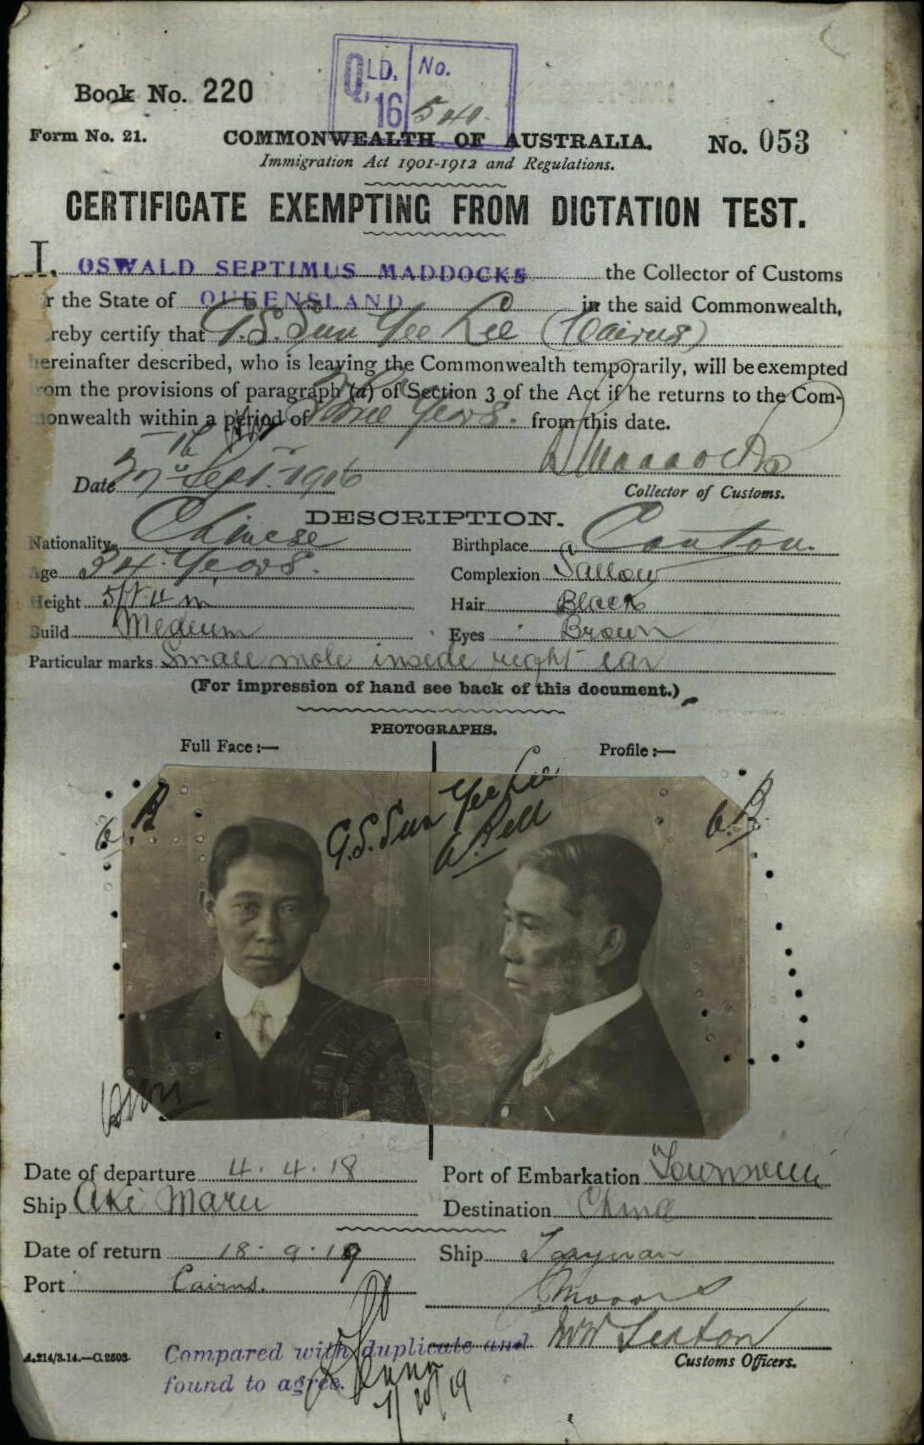 QLD. No.
16 540
Book No. 220
Form No. 21. COMMONWEALTH OF AUSTRALIA. No. 053
Immigration Act 1901-1912 and Regulations.
CERTIFICATE EXEMPTING FROM DICTATION TEST.
I, OSWALD SEPTIMUS MADDOCKS the Collector of Customs
r the State of QUEENSLAND in the said Commonwealth,
reby certify that G. S. Sun Yee Lee (Cairns)
hereinafter described, who is leaving the Commonwealth temporarily, will be exempted
rom the provisions of paragraph (a) of Section 3 of the Act if he returns to the Com-
monwealth within a period of Years. from this date.
Date Sept. 1916
Collector of Customs.
DESCRIPTION.
Nationality Chinese Birthplace Canton.
Age 34 Years. Complexion Sallow
Height Hair Black
Build Medium Eyes Brown
Particular marks Small mole inside right ear
(For impression of hand see back of this document.)
PHOTOGRAPHS.
Full Face:— Profile:—
G. S. Sun Yee Lee
Date of departure 4.4.18 Port of Embarkation Townsville
Ship Aki Maru Destination China
Date of return 18.9.19 Ship Taiyuan
Port Cairns.
Customs Officers.
A.214/3.14.—C.2503.
Compared with duplicate and
found to agree.